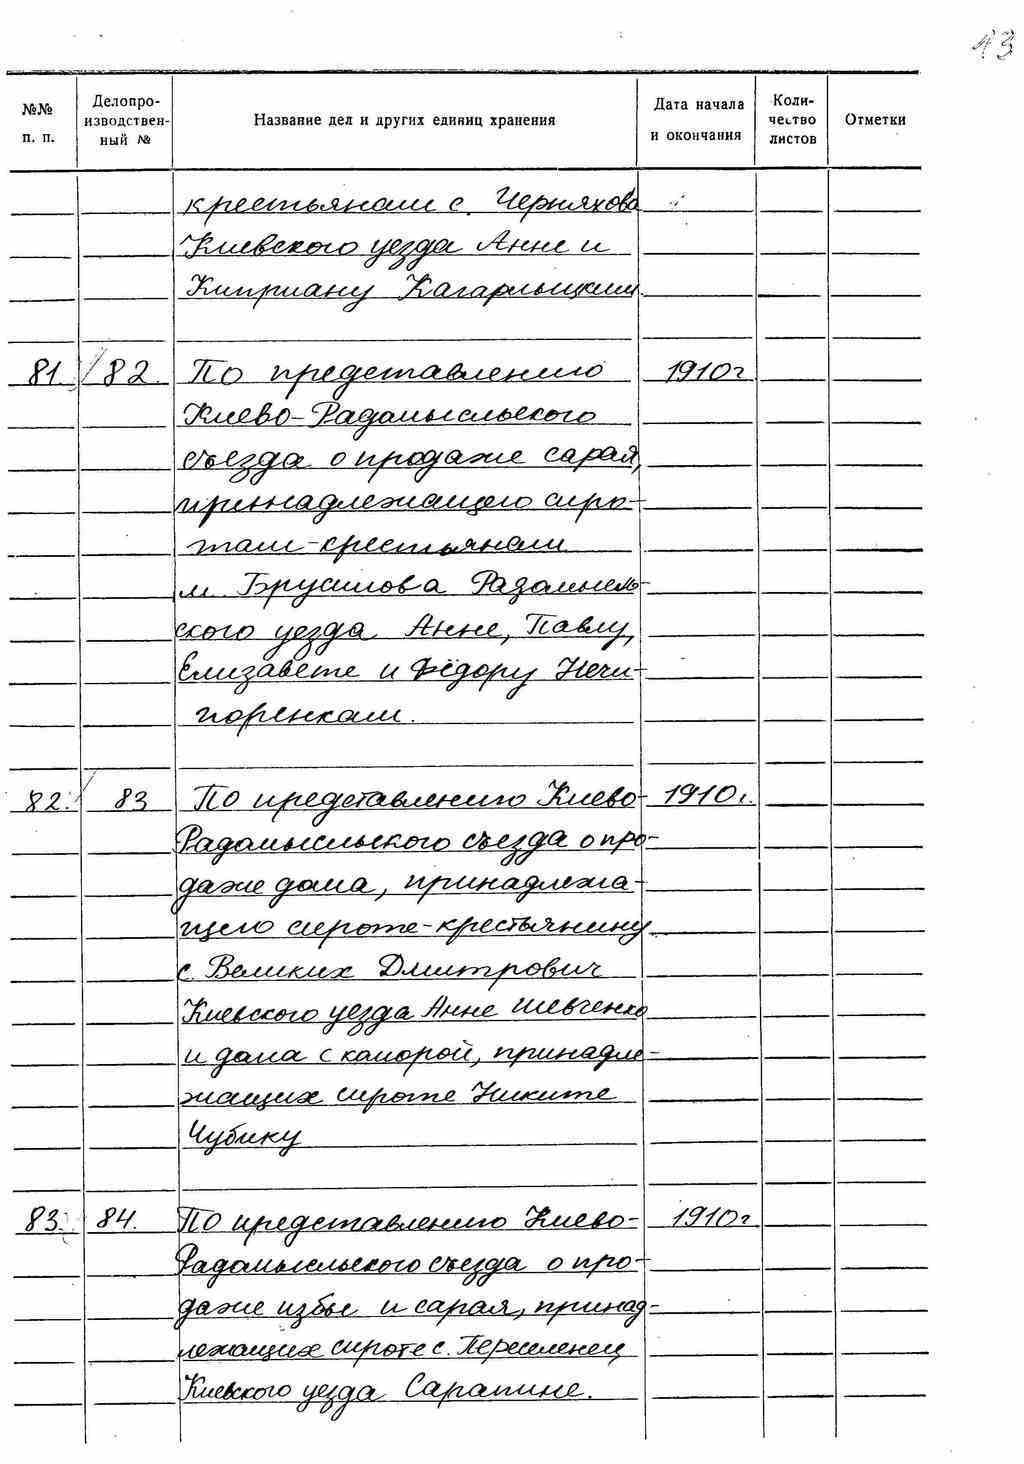 43
№№ п. п. Делопро-изводствен-ный № Название дел и других единиц хранения Дата начала и окончания Коли-чество листов Отметки
крестьянам с. Черняхова
Киевского уезда Анне и
Киприану Кагарлыцким.
81. 82. По представлению 1910г
Киево-Радомысльского
съезда о продаже сарая,
принадлежащего сиро-
там-крестьянам
м. Брусилова Радомысль-
ского уезда Анне, Павлу,
Елизавете и Фёдору Нечи-
поренкам.
82. 83 По представлению Киево- 1910г.
Радомысльского съезда о про-
даже дома, принадлежа-
щего сироте-крестьянину
с. Великих Дмитрович
Киевского уезда Анне Шевченко
и дома с коморой, принадле-
жащих сироте Никите
Чубику
83. 84. По представлению Киево- 1910г
Радомысльского съезда о про-
даже избы и сарая, принад-
лежащих сироте с. Переселенец
Киевского уезда Сарапине.